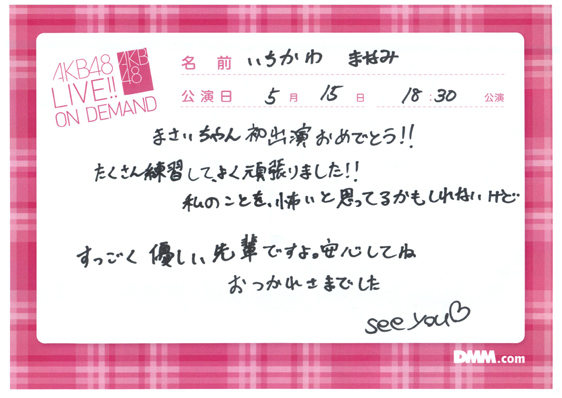 AKB48
LIVE!!
ON DEMAND
AKB
48
名前 いちかわ まなみ
公演日 5月 15日 18:30 公演
まさいちゃん 初出演 おめでとう!!
たくさん練習して、よく頑張りました!!
私のことを、怖いと思ってるかもしれないけど
すっごく 優しい先輩ですよ。安心してね
おつかれさまでした
see you♡
DMM.com